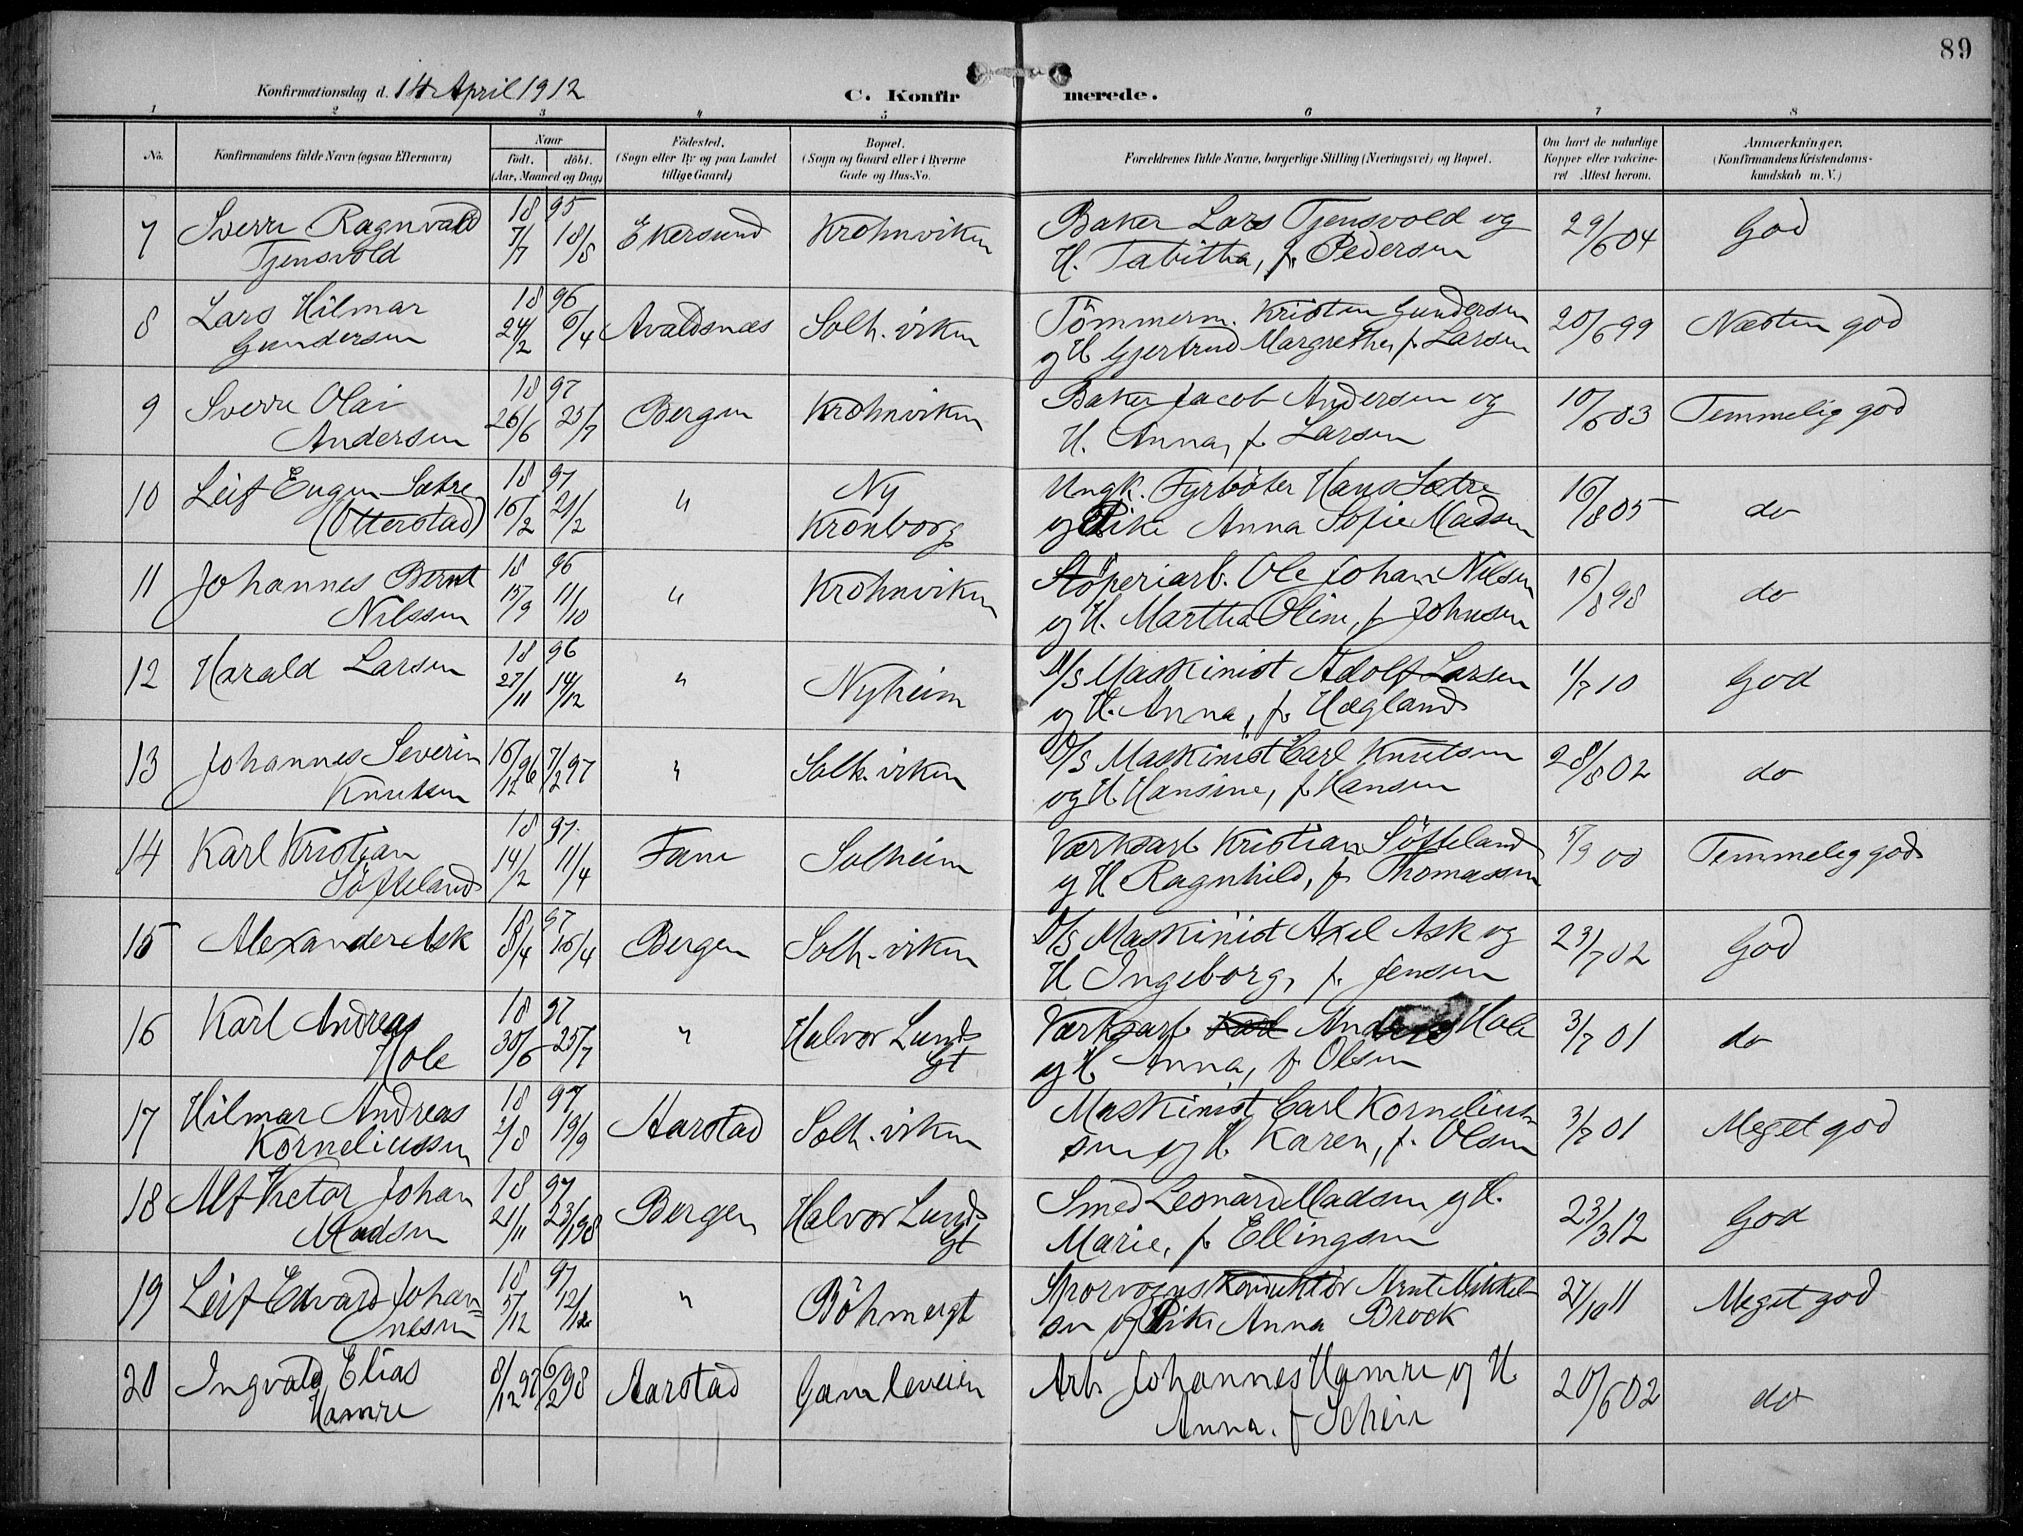 89
Konfirmationsdag d. 14 April 1912
C. Konfirmerede.
1 2 3 4 5 6 7 8
No. Konfirmandens fulde Navn (ogsaa Efternavn) Naar født. døbt. (Aar, Maaned og Dag.) Fødested. (Sogn eller By og paa Landet tillige Gaard.) Bopæl. (Sogn og Gaard eller i Byerne Gade og Hus-No. Forældrenes fulde Navne, borgerlige Stilling (Næringsvei) og Bopæl. Om havt de naturlige Kopper eller vakcineret Attest herom. Anmærkninger. (Konfirmandens Kristendomskundskab m. V.)
7 Sverre Ragnvald 18 95 7/7 18/8 Ekersund Krohnviken Baker Lars Tjensvold og 29/6 04 God
Tjensvold H. Tabitha, f. Pedersen
8 Lars Hilmar 18 96 24/2 6/4 Avaldsnæs Solh. viken Tömmerm. Kristen Gundersen 20/6 99 Næsten god
Gundersen og H Gjertrud Margrethe, f. Larsen
9 Sverre Olai 18 97 26/6 25/7 Bergen Krohnviken Baker Jacob Andersen og 10/6 03 Temmelig god
Andersen H. Anna, f. Larsen
10 Leif Eugen Sætre 18 97 16/2 21/2 " Ny Ungk. Fyrböter Hans Sætre 16/8 05 do
(Otterstad) Kronborg og Pike Anna Sofie Madsen
11 Johannes Bernt 18 96 15/9 11/10 " Krohnviken Stöperiarb. Ole Johan Nilsen 16/8 98 do
Nilssen og H. Martha Oline, f. Johnsen
12 Harald Larsen 18 96 27/11 14/12 " Nyheim D/S Maskinist Adolf Larsen 1/7 10 God
og H. Anna, f. Hægland
13 Johannes Severin 16/12 96 7/2 97 " Solh. viken D/S Maskinist Carl Knutsen 28/8 02 do
Knutsen og H. Hansine, f. Hansen
14 Karl Kristian 18 97. 14/2 11/4 Fane Solheim Værksarb Kristian Söfteland 5/9 00 Temmelig god
Söfteland og H Ragnhild, f. Thomassen
15 Alexander Ask 18 97 8/4 16/4 Bergen Solh. viken D/S Maskinist Axel Ask og 23/7 02 God
H Ingeborg, f. Jensen
16 Karl Andreas 18 97 30/6 25/7 " Halvor Lunds Værksarb Karl Anders Hole 3/7 01 do
Hole Gt og H Anna, f. Olsen
17 Hilmar Andreas 18 97 2/8 19/9 Aarstad Solh. viken Maskinist Carl Kornelius- 3/7 01 Meget god
Korneliussen sen og H. Karen, f. Olsen
18 Alf Victor Johan 18 97 21/11 23/1 98 Bergen Halvor Lunds Smed Leonard Madsen og H. 23/3 12 God
Madsen Gt Marie, f. Ellingsen
19 Leif Edvard Johan= 18 97 5/12 12/12 " Böhmergt Sporvognskonduktör Arnt Mikkel- 27/10 11 Meget god
nesen sen og Pike Anna Brock
20 Ingvald Elias 8/12 97 6/2 98 Aarstad Gamleveien Arb. Johannes Hamre og H 20/6 02 do
Hamre Anna. f